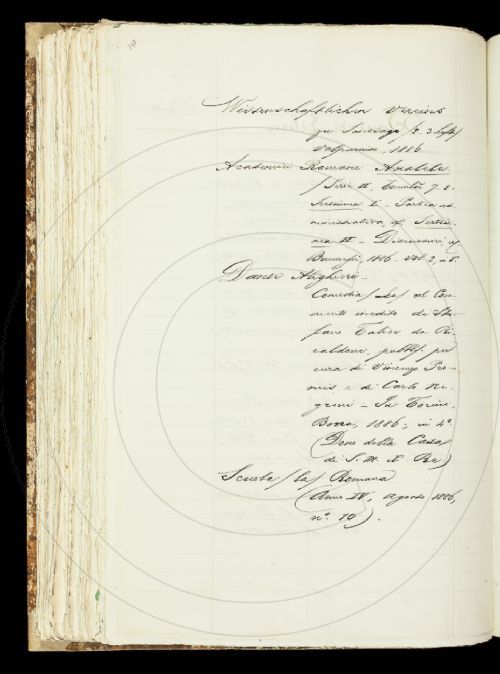 Wissenschaftlichen Vereins
zu Santiago /2. 3 heft/
Valparaiso, 1886
Academiei Romane Analele
/Serie II. Tomulu 7. e.
Sectiunea I - Partea ad
ministrativa, și Sectiu-
nea II - Discursuri, și
Bucuresci, 1886 - vol. 2, in 8.
Dante Alighieri -
Comedia /La/ col Com-
mento inedito di Ste-
fano Talice da Ri-
caldone, pubbl. per
cura di Vincenzo Pro-
mis e di Carlo Ne-
groni - In Torino,
Bona, 1886, in 4º.
(Dono della Casa
di S. M. il Re)
Scuola /la/ Romana
(Anno IV, agosto 1886,
nº. 10).